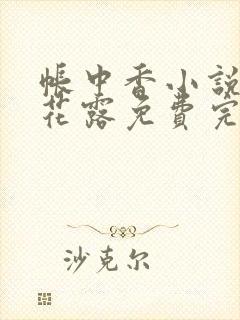 帳中香小說
花露免費完
沙克尔